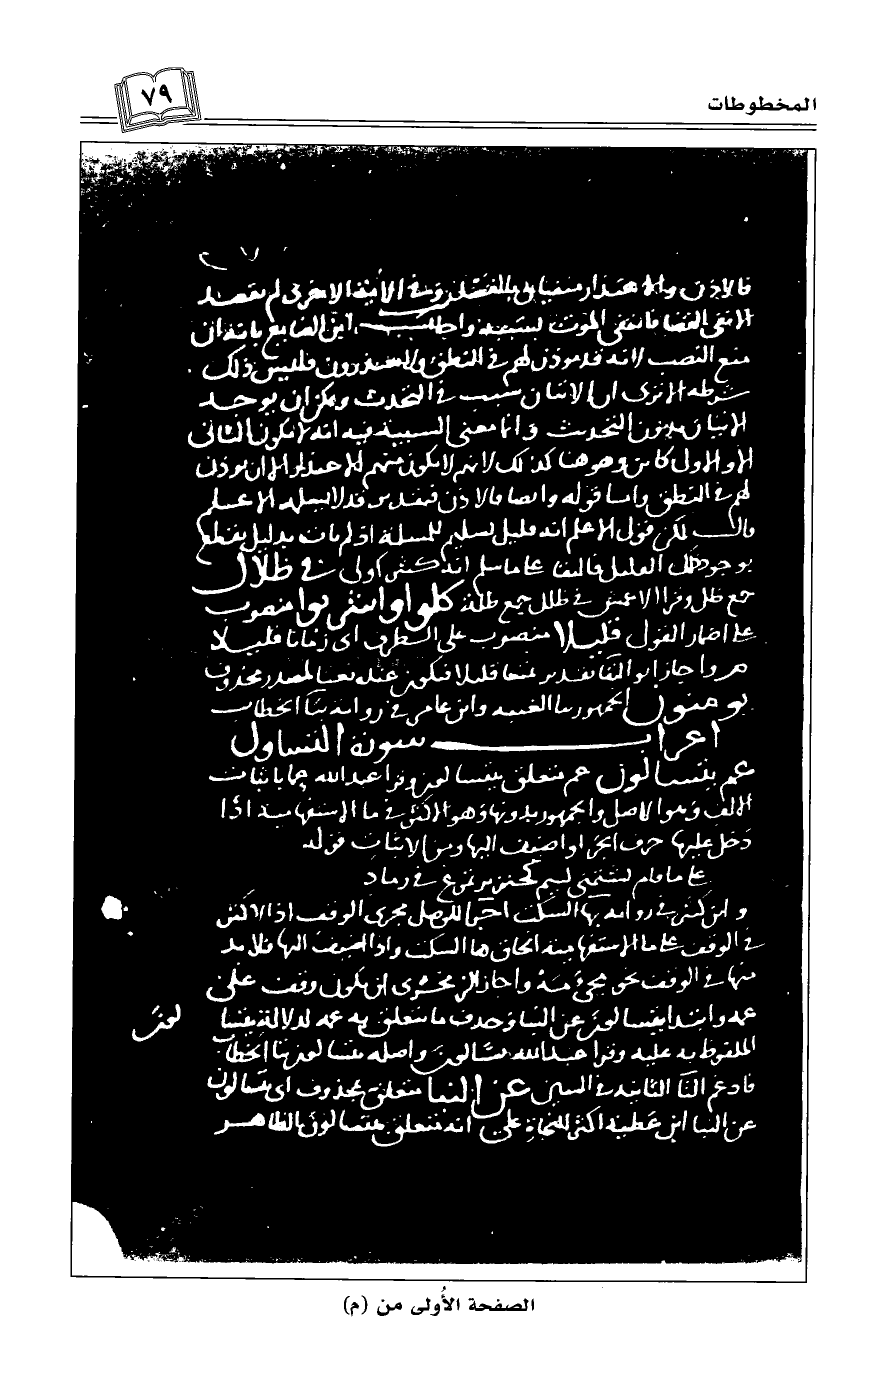 المخطوطات
٧٩
فالاذن والاعتذار منفيان بالفصل وفي الآية الاخرى لم يقصد
الا نفي القضا فانتفى الموت لسببه واطلب ابن الصايغ بانه ان
منع النصب لانه قد يوذن لهم في النطق ولا يعتذرون فليس ذلك
شرطه الا ترى ان الاتيان سبب في التحدث ويمكن ان يوجد
الاتيان بدون التحدث وانما معنى السببية فيه انه لا يكون الثاني
الا والاول كائن وهو هنا كذلك لانهم لا يكون منهم الاعتذار الا ان يوذن
لهم في النطق واما قوله وايضا فالاذن قد لا يسلمه الاعلم
قال لكن قول الاعلم انه قليل تسليم للمسلة اذ لم يات بدليل يقطع
بوجود القليل فالبقا على ما سلم انه كثير اولى في ظلال
جمع ظل وقرا الاعمش في ظلل جمع ظلة كلوا واشربوا منصوب
على اضمار القول قليلا منصوب على الظرف اى زمانا قليلا
واجاز ابو البقا تقدير تمتعا قليلا فيكون عنده نعتا لمصدر محذوف
يومنون الجمهور بيا الغيبه وابن عامر في رواية بتا الخطاب
اعراب سورة التساول
عم يتسالون عم متعلق بيتسالون وقرا عبد الله عما باثبات
الالف وهو الاصل والجمهور بدونها وهو الاكثر في ما الاستفهامية اذا
دخل عليها حرف الجر او اضيف اليها ومن الاثبات قوله
على ما قام يشتمني لييم كخنزير تمرغ في رماد
وابن كثير في رواية بها السكت اجرا للوصل مجرى الوقف اذ الاكثر
في الوقف على ما الاستفهامية الحاق ها السكت واذا اضيف اليها فلا بد
منها في الوقف نحو مجيء مه واجاز الزمخشرى ان يكون وقف على
عمه وابتدا بيتسالون عن النبا وحذف ما يتعلق به عمه لدلالة يتسا
لون
الملفوظ به عليه وقرا عبد الله يسالون واصله يتسالون بتا الخطاب
فادغم التا الثانية في السين عن النبا متعلق بمحذوف اى يتسالون
عن النبا ابن عطية اكثر النحاة على انه متعلق بيتسالون الظاهر
الصفحة الأُولى من (م)